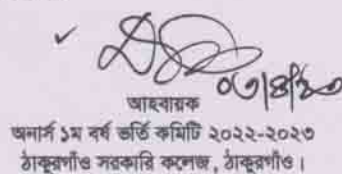 ০৩/৪/২৩
আহবায়ক
অনার্স ১ম বর্ষ ভর্তি কমিটি ২০২২-২০২৩
ঠাকুরগাঁও সরকারি কলেজ, ঠাকুরগাঁও।